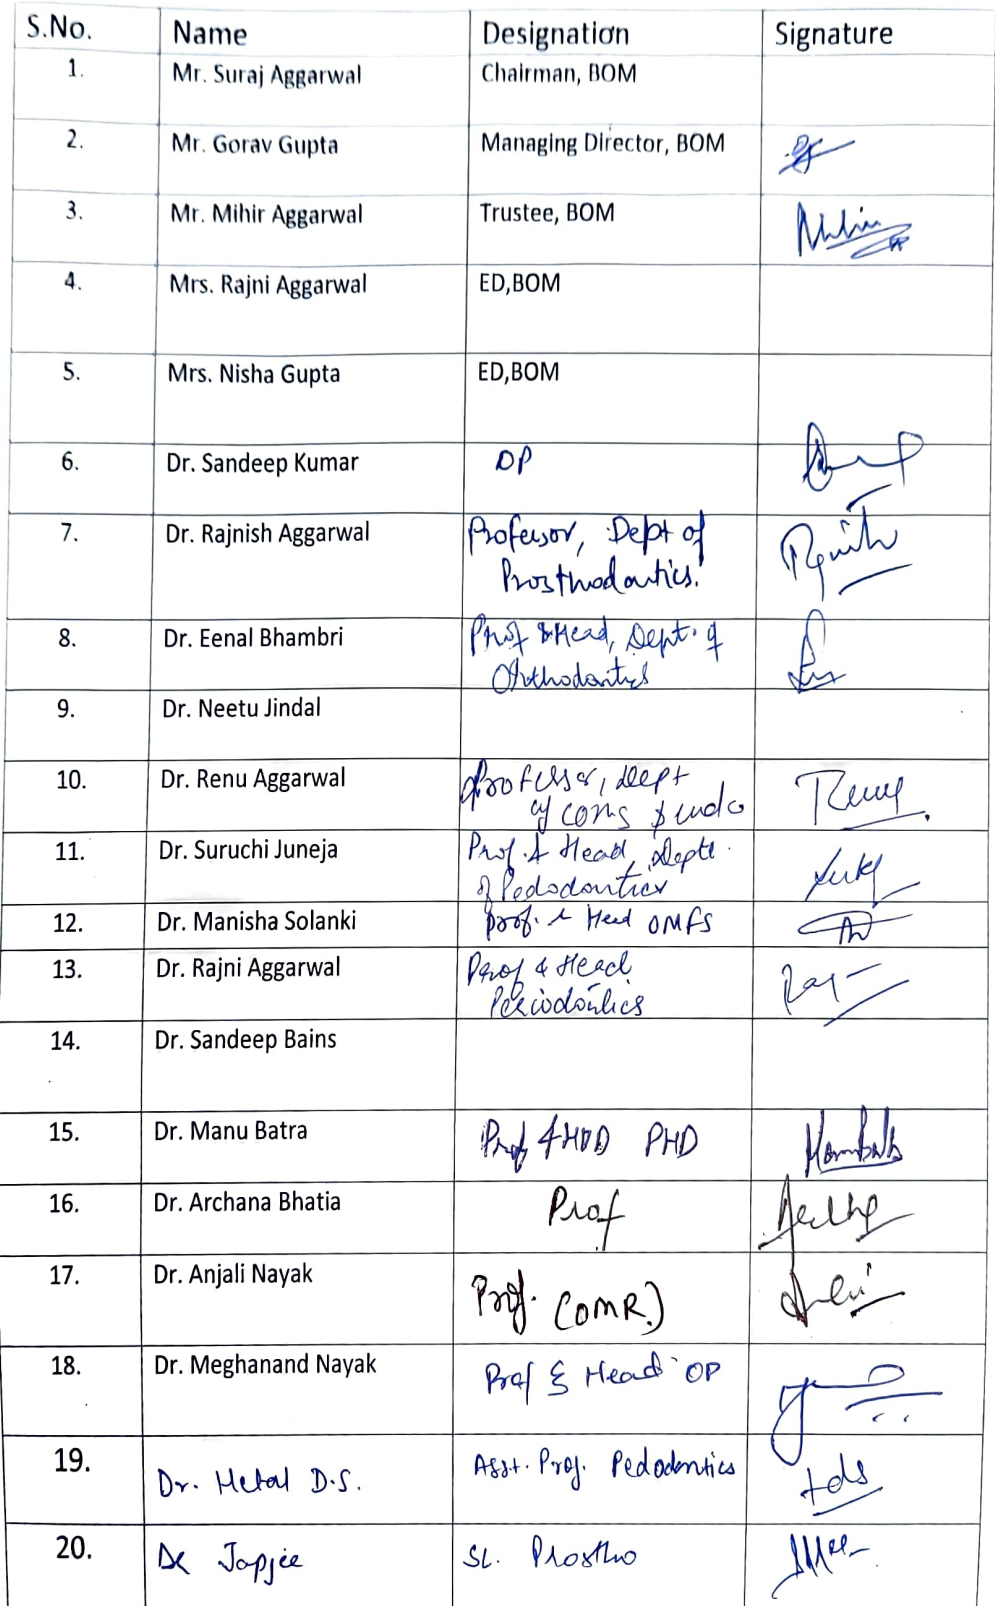 S.No. Name Designation Signature
1. Mr. Suraj Aggarwal Chairman, BOM
2. Mr. Gorav Gupta Managing Director, BOM
3. Mr. Mihir Aggarwal Trustee, BOM
4. Mrs. Rajni Aggarwal ED,BOM
5. Mrs. Nisha Gupta ED,BOM
6. Dr. Sandeep Kumar OP
7. Dr. Rajnish Aggarwal Professor, Dept of
Prosthodontics.
8. Dr. Eenal Bhambri Prof & Head, Dept. of
Orthodontics
9. Dr. Neetu Jindal
10. Dr. Renu Aggarwal Professor, Dept
of cons & endo
11. Dr. Suruchi Juneja Prof. & Head, Dept.
of Pedodontics
12. Dr. Manisha Solanki prof. & Head OMFS
13. Dr. Rajni Aggarwal Prof & Head
Periodontics
14. Dr. Sandeep Bains
15. Dr. Manu Batra Prof & HOD PHD
16. Dr. Archana Bhatia Prof
17. Dr. Anjali Nayak Prof. (OMR.)
18. Dr. Meghanand Nayak Prof & Head OP
19. Dr. Hetal D.S. Asst. Prof. Pedodontics tds
20. Dr Japjee SL. Prostho